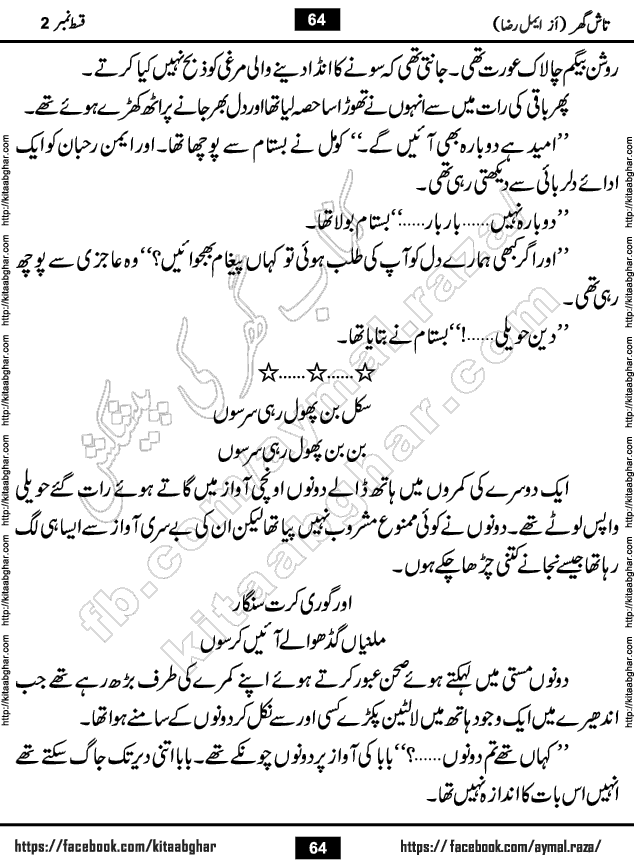 تاش گھر (از ایمل رضا)
64
قسط نمبر 2
روشن بیگم چالاک عورت تھی۔ جانتی تھی کہ سونے کا انڈا دینے والی مرغی کو ذبح نہیں کیا کرتے۔
پھر باقی کی رات میں سے انہوں نے تھوڑا سا حصہ لیا تھا اور دل بھر جانے پر اٹھ کھڑے ہوئے تھے۔
’’امید ہے دوبارہ بھی آئیں گے۔‘‘ کومل نے بستام سے پوچھا تھا۔ اور ایمن رحبان کو ایک
ادائے دلربائی سے دیکھتی رہی تھی۔
’’دوبارہ نہیں......بار بار......‘‘ بستام بولا تھا۔
’’اور اگر کبھی ہمارے دل کو آپ کی طلب ہوئی تو کہاں پیغام بھجوائیں؟‘‘ وہ عاجزی سے پوچھ
رہی تھی۔
’’دین حویلی......!‘‘ بستام نے بتایا تھا۔
☆......☆......☆
سکل بن پھول رہی سرسوں
بن بن پھول رہی سرسوں
ایک دوسرے کی کمروں میں ہاتھ ڈالے دونوں اونچی آواز میں گاتے ہوئے رات گئے حویلی
واپس لوٹے تھے۔ دونوں نے کوئی ممنوع مشروب نہیں پیا تھا لیکن ان کی بے سری آواز سے ایسا ہی لگ
رہا تھا جیسے نجانے کتنی چڑھا چکے ہوں۔
اور گوری کرت سنگار
ملنیاں گڈھوالے آئیں کرسوں
دونوں مستی میں لہکتے ہوئے صحن عبور کرتے ہوئے اپنے کمرے کی طرف بڑھ رہے تھے جب
اندھیرے میں ایک وجود ہاتھ میں لالٹین پکڑے کسی اور سے نکل کر دونوں کے سامنے ہوا تھا۔
’’کہاں تھے تم دونوں......؟‘‘ بابا کی آواز پر دونوں چونکے تھے۔ بابا اتنی دیر تک جاگ سکتے تھے
انہیں اس بات کا اندازہ نہیں تھا۔
کتاب گھر کی پیشکش
fb.com/aymal.raza/
kitaabghar.com
http://kitaabghar.com http://kitaabghar.com http://kitaabghar.com http://kitaabghar.com http://kitaabghar.com http://kitaabghar.com
http://kitaabghar.com http://kitaabghar.com http://kitaabghar.com http://kitaabghar.com http://kitaabghar.com http://kitaabghar.com
https://facebook.com/kitaabghar
64
https://facebook.com/aymal.raza/